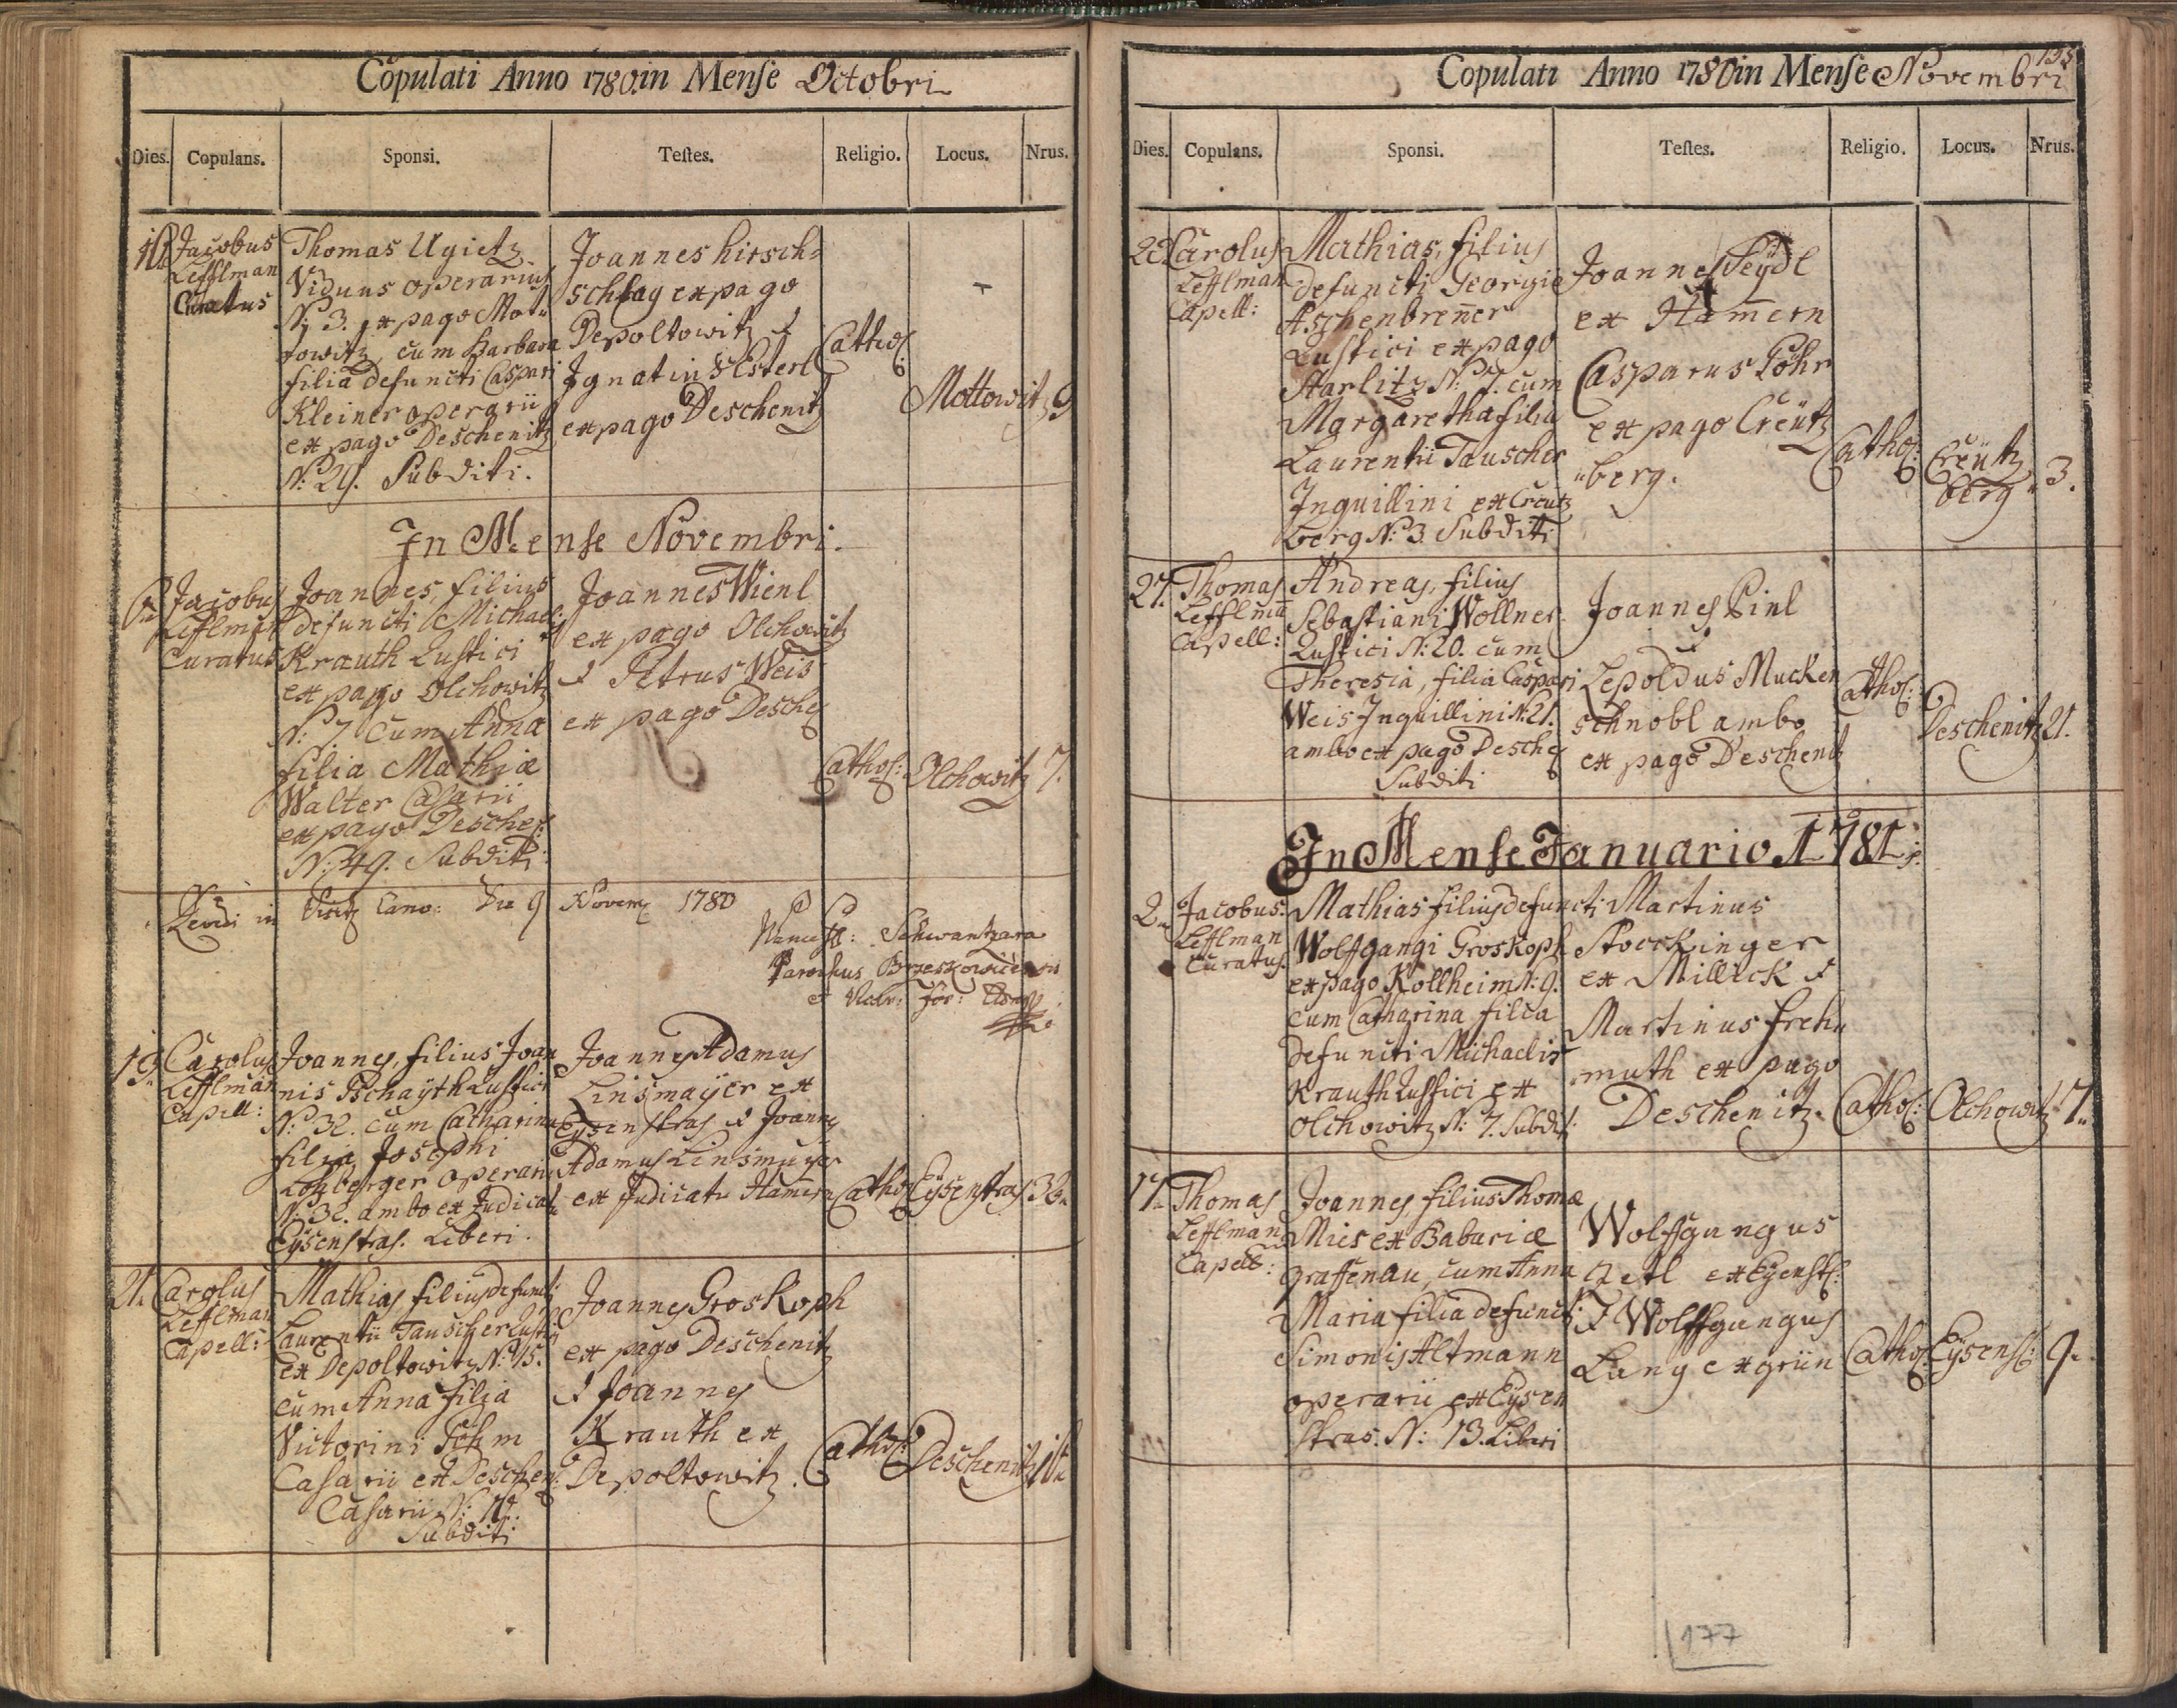 Copulati Anno 1780. in Mense Octobri
Dies. Copulans. Sponsi. Testes. Religio. Locus. Nrus.
Jacobus
Lefflman
Curatus
Thomas Ugietz
Viduus operarius
N: 3. ex pago Mot„
towitz, cum Barbara
filia defuncti Caspari
Kleiner operarii
ex pago Deschenitz
N: 29. Subditi.
Joannes hirsch„
schlag ex pago
Depoltowitz &
Ignatius Esterl
ex pago Deschenitz
Cathol:
Mottowitz 9
In Mense Novembri.
Jacobus
Lefflman
Curatus
Joannes, filius
defuncti Michaelis
Krauth Rustici
ex pago Olchowitz
N: 7 cum Anna
filia Mathiæ
Walter Casarii
ex pago Deschen:
N: 49. Subditi:
Joannes Wienl
ex pago Olchowitz
& Petrus Weis
ex pago Deschen
Cathol: Olchowitz 7.
Revidi in Visit: Cano: Die 9 Novem 1780
Schwantzara
Parochus
19. Carolus
Lefflman
Capell:
Joannes, filius Joan
nis Tschaÿth Rustici
N: 32. cum Catharina
filia Josephi
Lohberger operarii
N: 32. ambo ex Judicatu
Eÿsenstras. Liberi.
Joannes Adamus
Linsmaÿer ex
Eÿsenstras & Joannes
Adamus Linsmaÿer
ex Judicatu Ham̄ern
Cathol: Eÿsenstras 32.
21. Carolus
Lefflman
Capell:
Mathias filius defuncti
Laurentii Tauscher Rustici
ex Depoltowitz N: 15.
cum Anna filia
Victorini Böhm
Casarii ex Deschen:
Casarii N: 11.
Subditi
Joannes Groskoph
ex pago Deschenitz
& Joannes
Krauth ex
Depoltowitz.
Cathol: Deschenitz 11.
Copulati Anno 1780 in Mense Novembri
Dies. Copulans. Sponsi. Testes. Religio. Locus. Nrus.
22 Carolus
Lefflman
Capell:
Mathias, filius
defuncti Georgii
Aschenbren̄er
Rustici ex pago
Starlitz N: 7. cum
Margaretha filia
Laurentii Tauscher
Inquillini ex Creutz
berg N: 3. Subditi
Joannes Seÿdl
ex Ham̄ern
Casparus Löhr
ex pago Creütz
„berg.
Cathol: Creütz
berg 3.
27. Thomas
Lefflman̄
Capell:
Andreas, filius
Sebastiani Wollner
Rustici N: 20. cum
Theresia, filia Caspari
Weis Inquillini N: 21.
ambo ex pago Deschen
Subditi
Joannes Pinl
&
Lepoldus Mucken
schnobl ambo
ex pago Deschenitz
Cathol: Deschenitz 21.
In Mense Januario 1781.
2. Jacobus
Lefflman
Curatus.
Mathias filius defuncti
Wolffgangi Groskoph
ex pago Kollheim N: 9.
cum Catharina filia
defuncti Michaelis
Krauth Rustici ex
Olchowitz N: 7. Subditi
Martinus
Stoeckinger
ex Millick &
Martinus freÿ„
muth ex pago
Deschenitz.
Cathol: Olchowitz 7.
17. Thomas
Lefflman
Capell:
Joannes filius Thomæ
Mies ex Babariæ
graffenau, cum Anna
Maria filia defuncti
Simonis Altmann
operarii ex Eÿsen
stras. N: 13. Liberi
Wolffgangus
ex Eÿsenst:
& Wolffgangus
Lang ex grün
Cathol: Eÿsenst: 9.
177